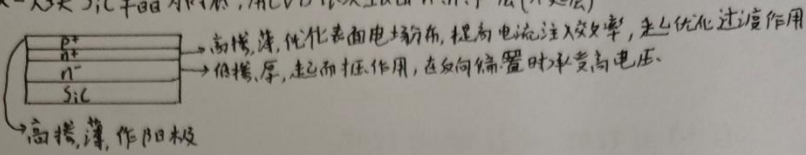 SiC 作
P+
n+ → 高掺,薄,优化表面电场分布,提高电流注入效率,起优化过渡作用
n- → 低掺,厚,起耐压作用,在反向偏置时承受高电压.
SiC
高掺,薄,作阳极